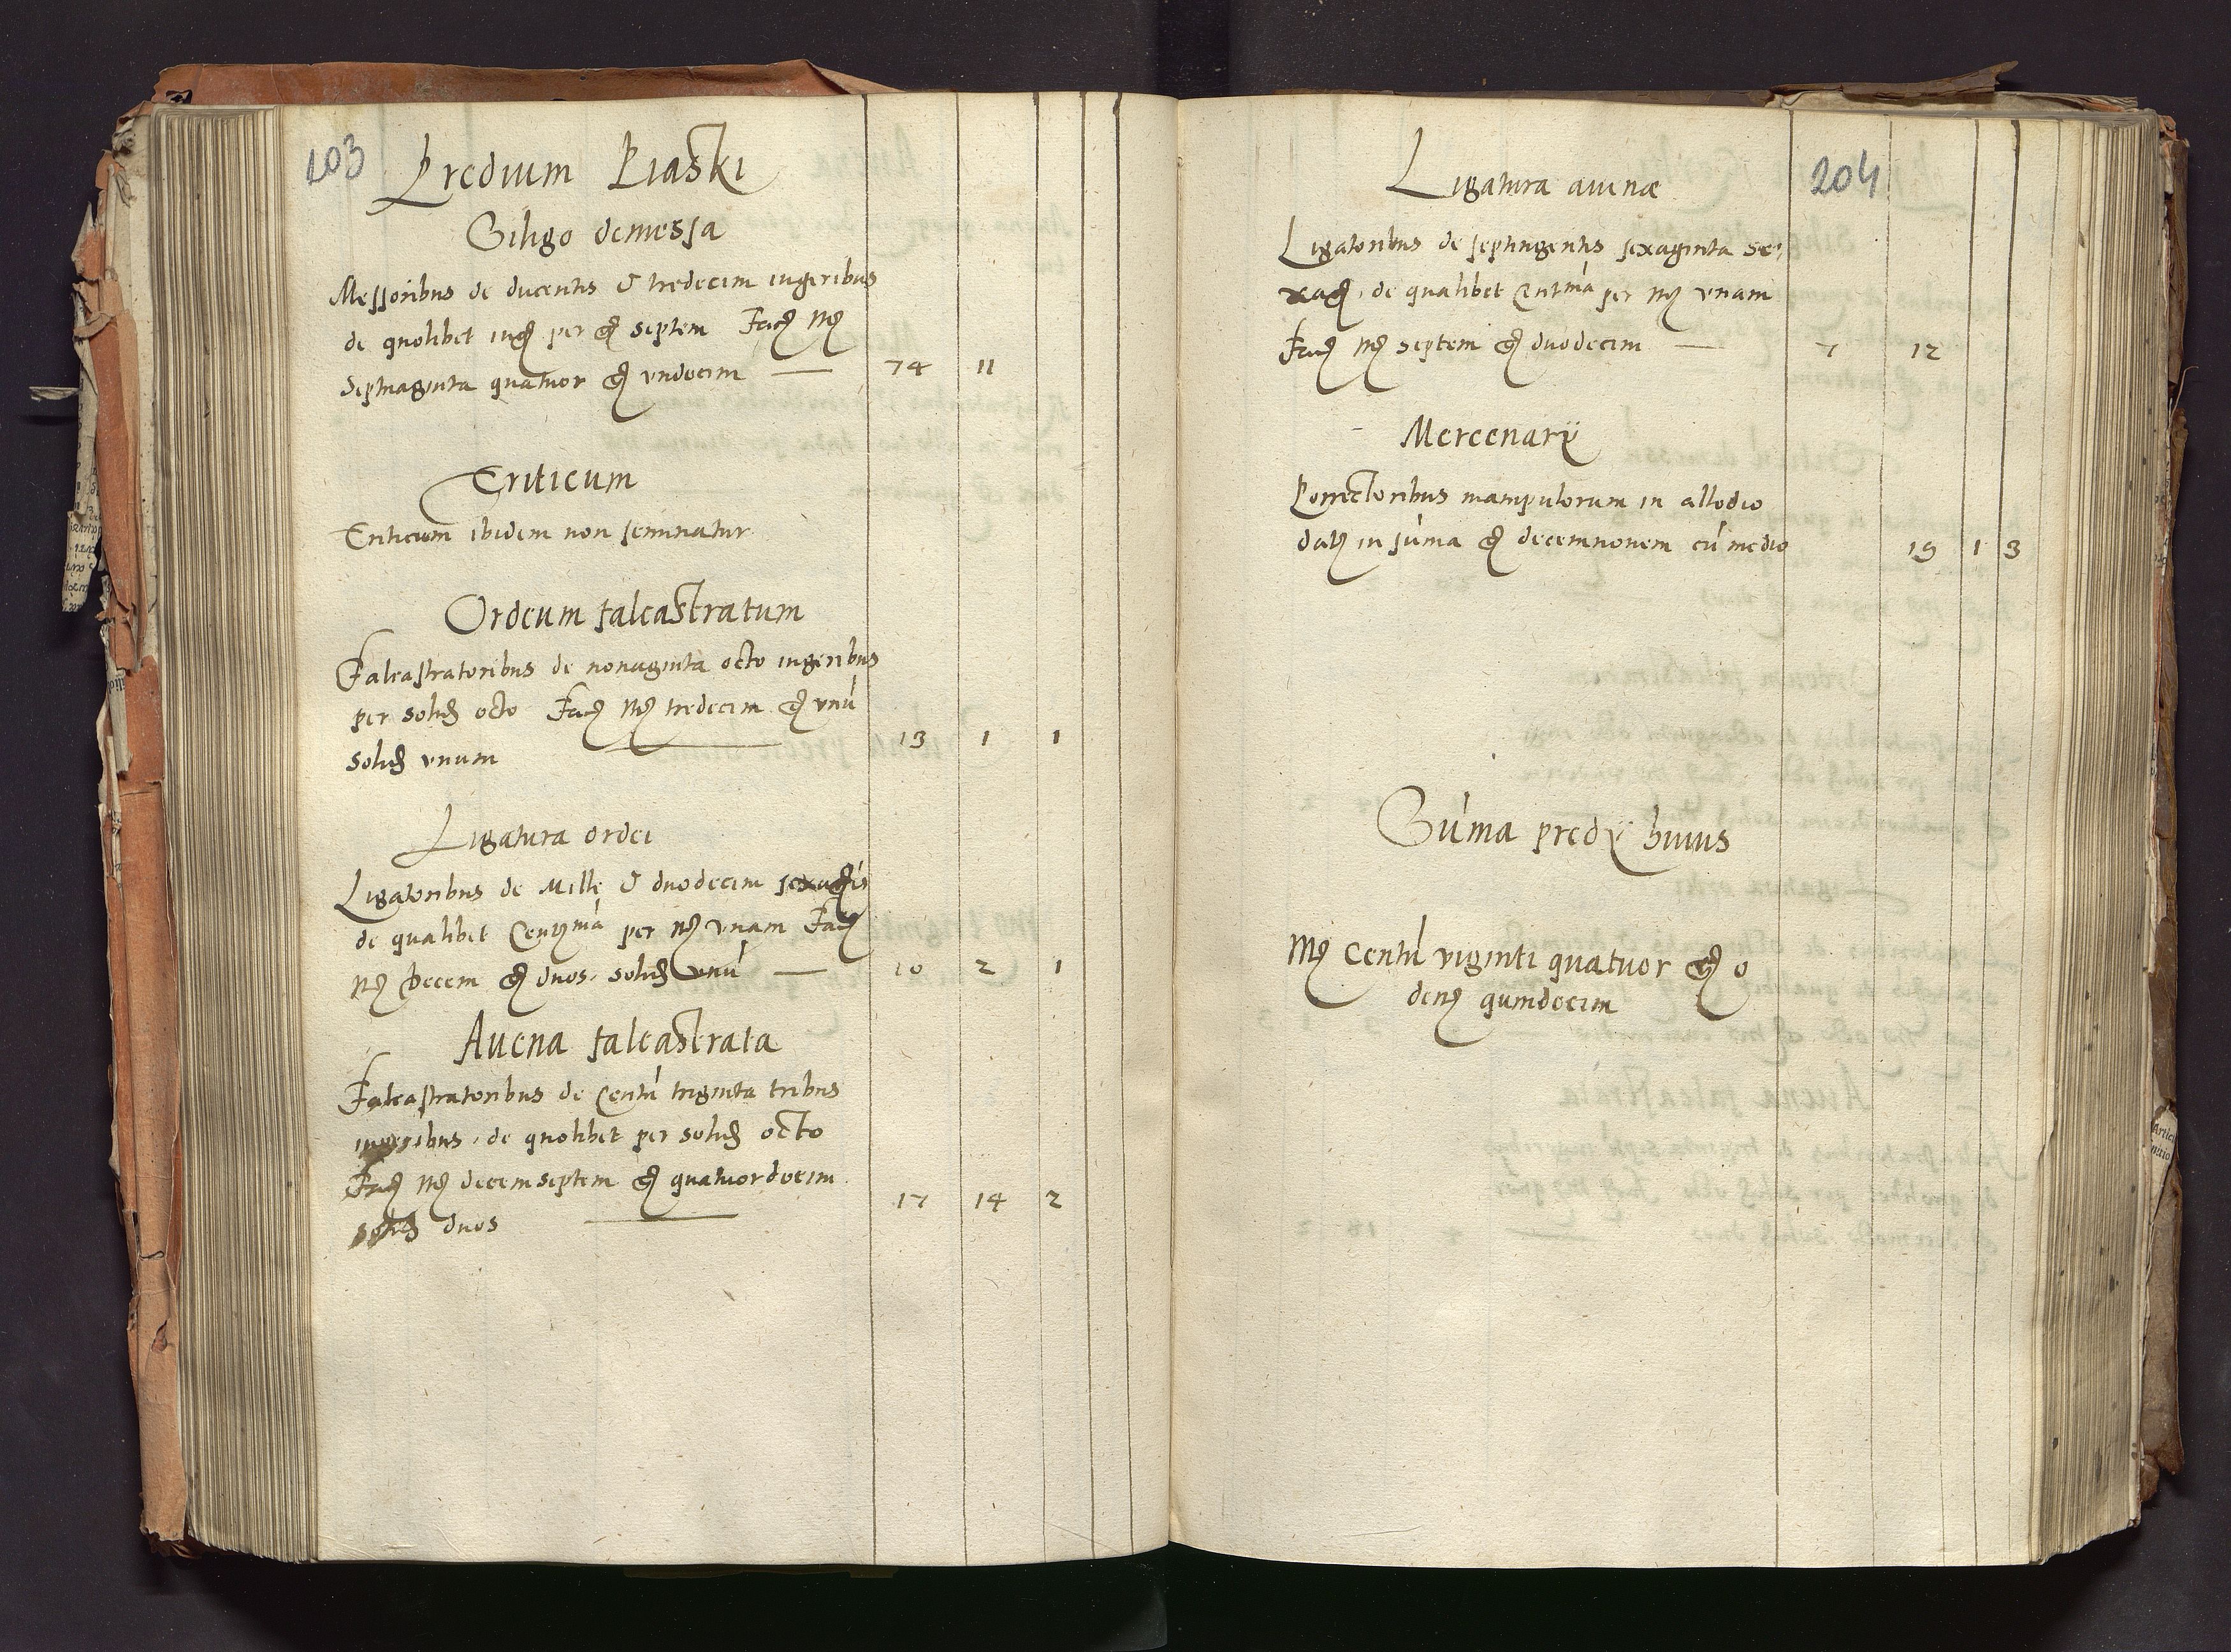 203
Predium Piaski
Siligo demessa
Messoribus de ducentis & tredecim iugeribus
de quolibet iug per gr septem Facit Mr
septuaginta quatuor gr undecim — 74 11
Triticum
Triticum ibidem non seminatur
Ordeum falcastratum
Falcastratoribus de nonaginta octo iugeribus
per solid octo Facit Mr tredecim gr unú
solid unum — 13 1 1
Ligatura ordei
Ligatoribus de Mille & duodecim sexagis
de qualibet Centma per Mr vnam Facit
Mr decem gr duos. solid vnú — 10 2 1
Auena falcastrata
Falcastratoribus de Centú triginta tribus
iugeribus, de quolibet per solid octo
Facit Mr decemseptem gr quatuordecim
solid duos — 17 14 2
204
Ligatura auenæ
Ligatoribus de septingentis sexaginta se:
xag, de qualibet Centma per Mr vnam
Facit Mr septem gr duodecim — 7 12
Mercenarÿ
Porrectoribus manipulorum in allodio
datt in súma gr decemnouem cú medio 19 1 3
Súma predÿ huius
Mr Centú viginti quatuor gr 0
denr quindecim